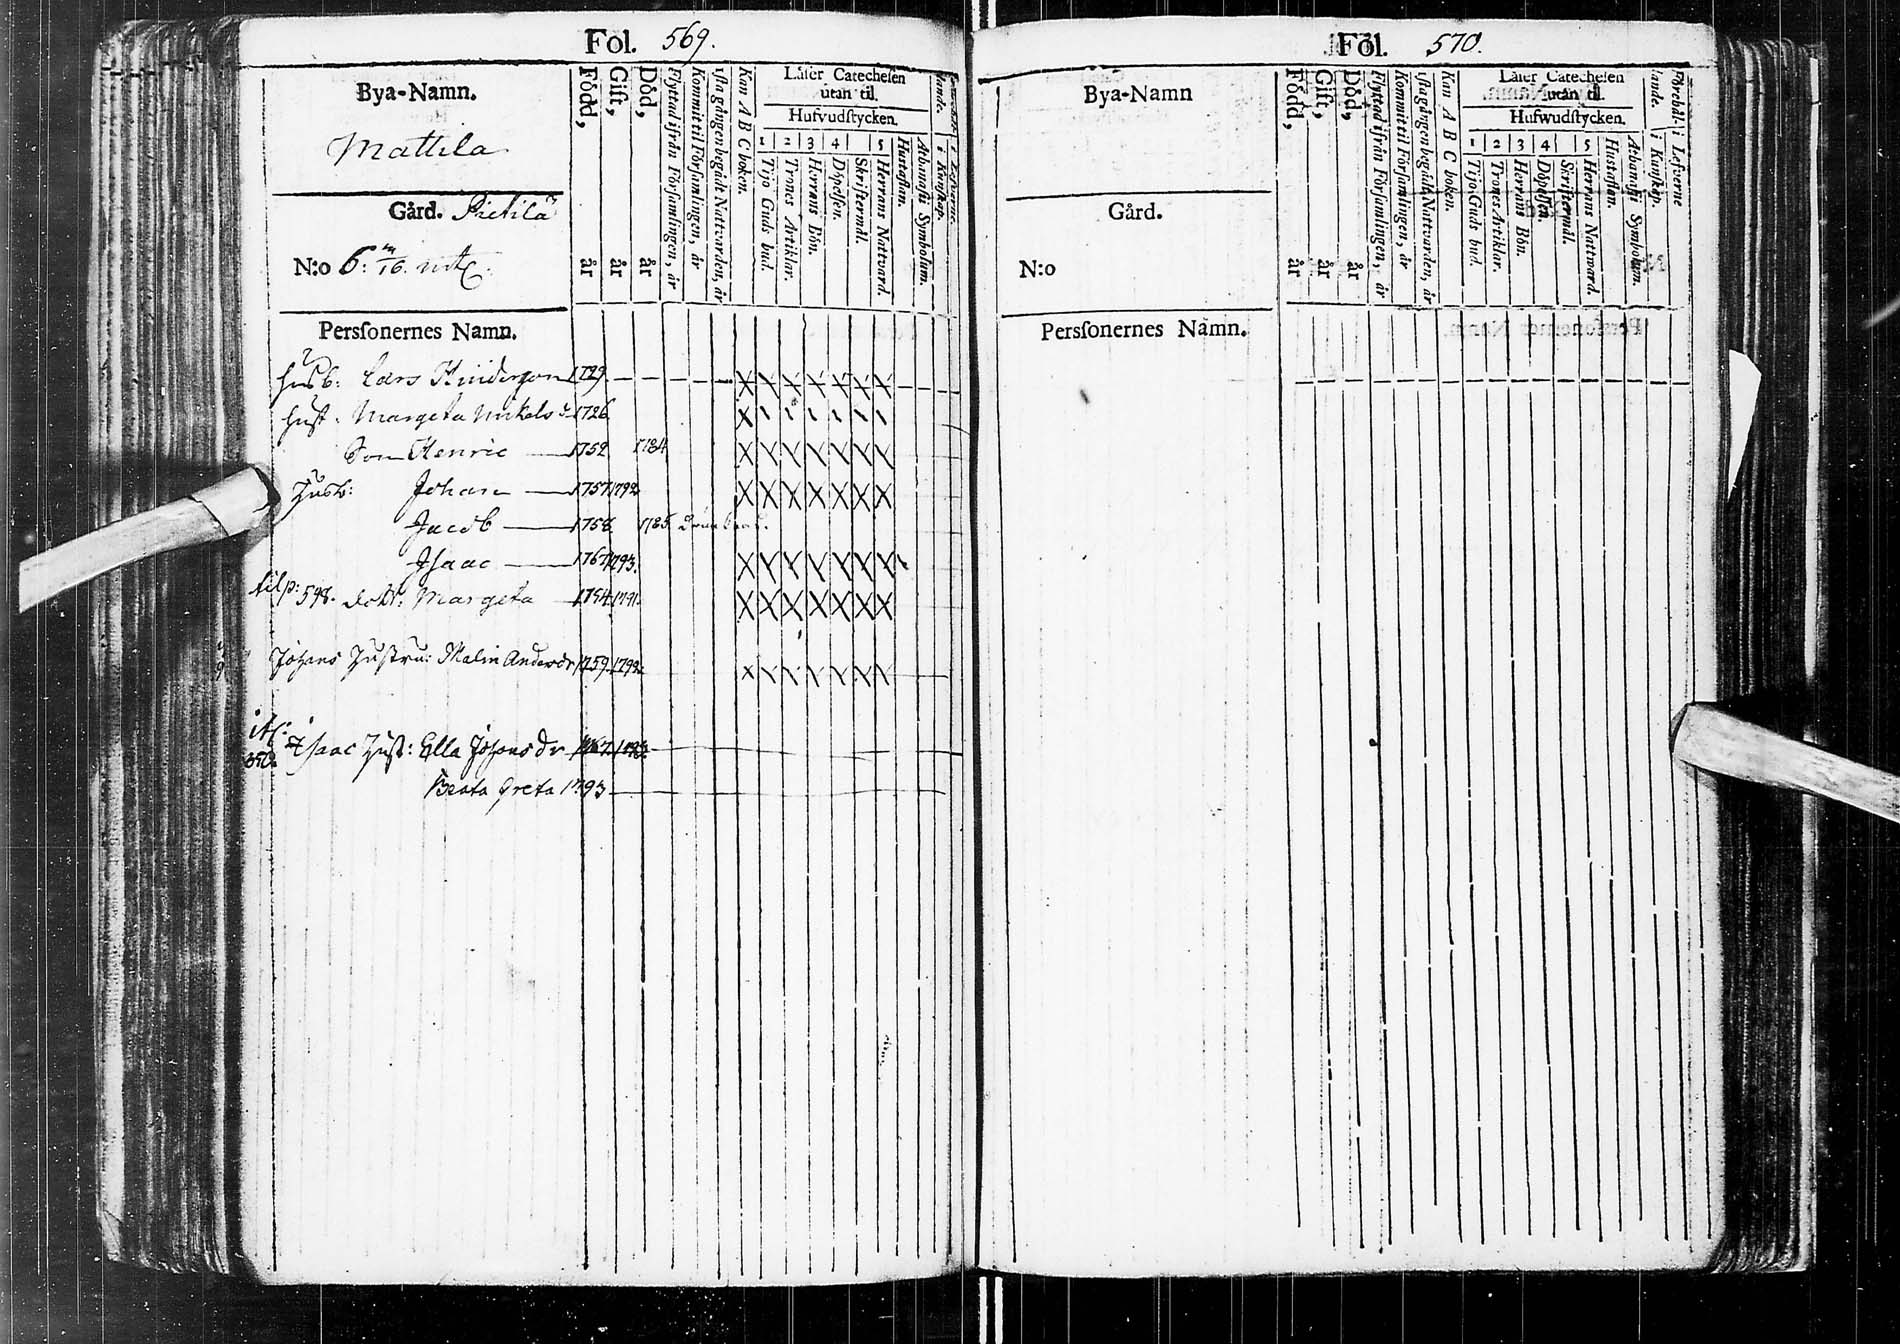 Fol. 569.
Bya-Namn.
Mattila
Gård. Pietilä
N:o 6: 
Född, år
Gift, år
Död, år
Flyttad ifrån Församlingen, år
Kommit til Församlingen, år
1sta gången begådt Nattvarden, år
Kan A B C boken.
Läser Catechesen
utan til.
Hufvudstycken.
1 2 3 4 5
Tijo Guds bud.
Trones Artiklar.
Herrans Bön.
Döpelsen.
Skriftermål.
Herrans Nattvard.
Hustaflan.
Athanasii Symbolum.
i Kunskap.
i Lefverne.
Perssonernes Namn.
Husb: Lars Hinderson 1729
Hust. Margeta Mickelsd 1726
Son Henric 1752 1784
Johan 1757 1792
Jacob 1758 1785
Isaac 1767 1793.
598. dottr: Margeta 1754 1791
Johans Hustru: Malin Andersdr 1759 1792
Isaac Hust: Ella Johansdr 1767 1793
Beata Greta 1793
Fol. 570.
Bya-Namn
Gård.
N:o
Född, år
Gift, år
Död, år
Flyttad ifrån Församlingen, år
Kommit til Församlingen, år
1sta gången begådt Nattvarden, år
Kan A B C boken.
Läser Catechesen
utan til.
Hufwudstycken.
1 2 3 4 5
Tijo Guds bud.
Trones Artiklar.
Herrans Bön.
Döpelsen.
Skriftermål.
Herrans Nattward.
Hustaflan.
Athanasii Symbolum.
Förehållande.
i Kunskap.
i Lefverne
Perssonernes Namn.